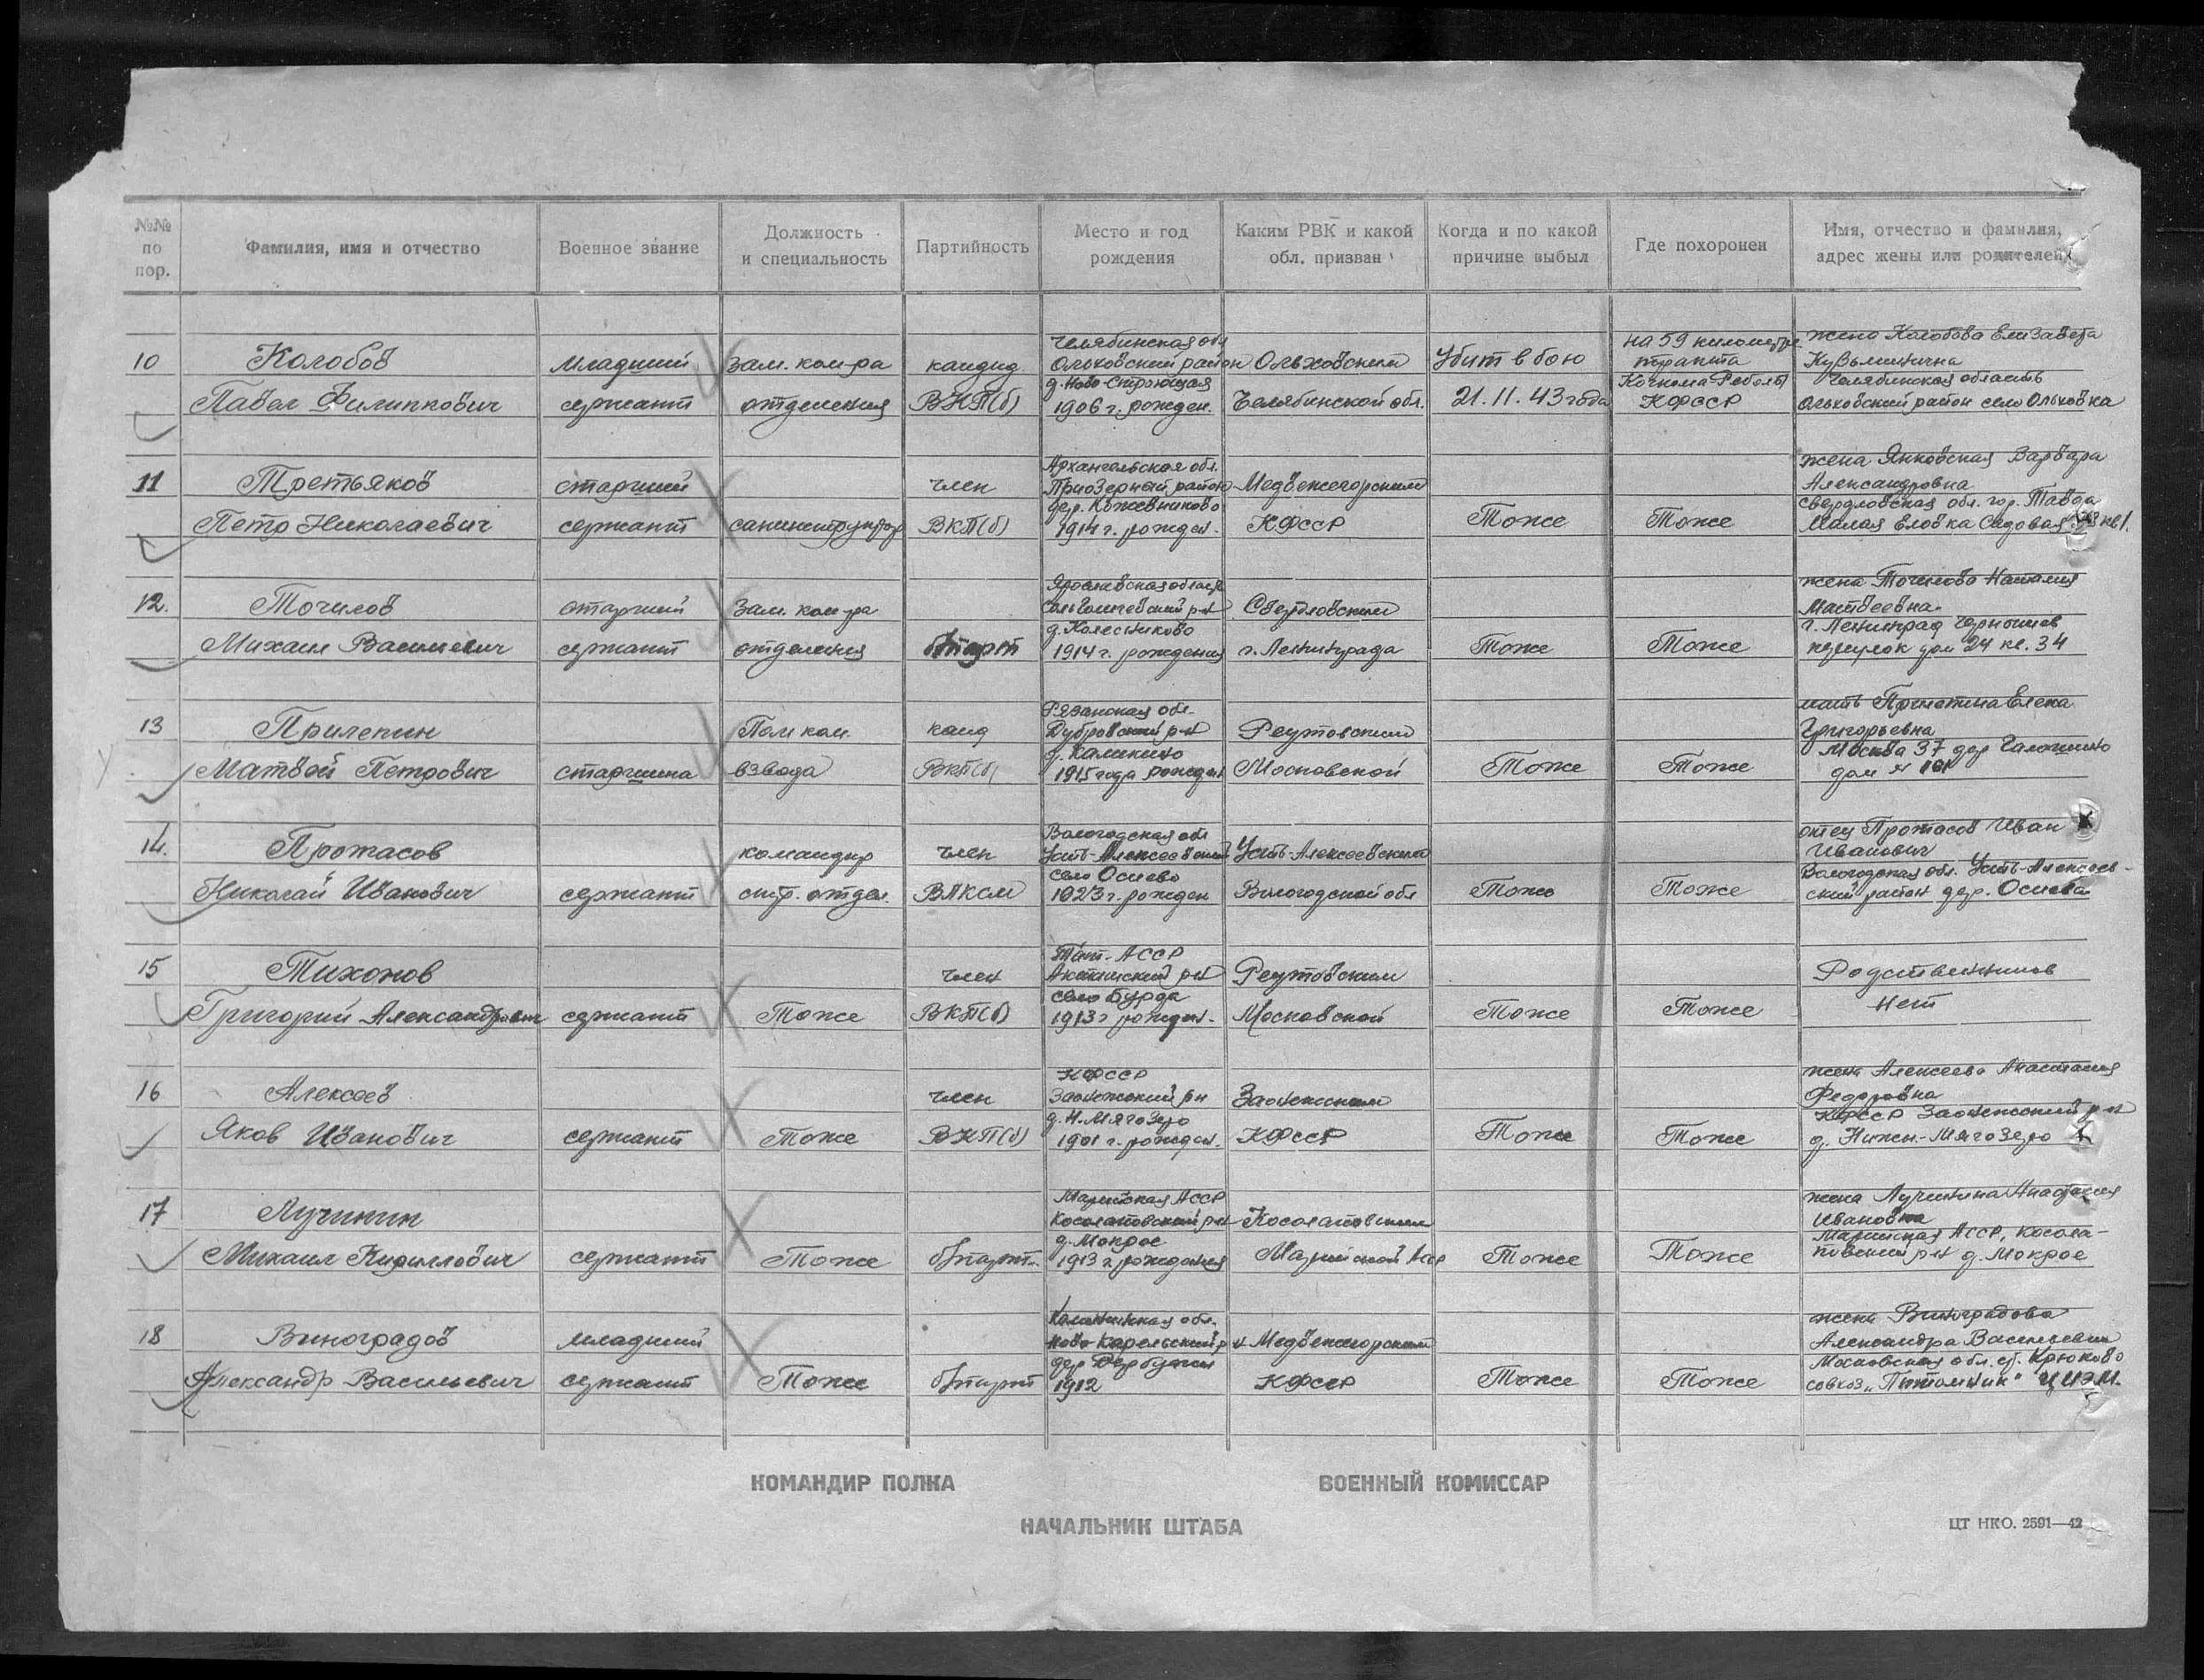 №№ по пор.
Фамилия, имя и отчество
Военное звание
Должность и специальность
Партийность
Место и год рождения
Каким РВК и какой обл. призван
Когда и по какой причине выбыл
Где похоронен
Имя, отчество и фамилия, адрес жены или родителей
10
Колобов
Павел Филиппович
младший
сержант
зам. ком-ра
отделения
кандид
ВКП(б)
Челябинская обл
Ольховский район
1906 г. рожден.
Ольховским
Челябинской обл.
Убит в бою
21.11.43 года
на 59 километре
тракта
Кочкома Реболы
КФССР
жена Колобова Елизавета
Кузьминична
Челябинская область
Ольховский район село Ольховка
11
Третьяков
Петр Николаевич
старший
сержант
санинструктор
член
ВКП(б)
Архангельская обл.
Приозерный район
дер. Кожевниково
1914 г. рожден.
Медвежегорским
КФССР
Тоже
Тоже
жена Янковская Варвара
Александровна
Свердловская обл. гор. Тавда
Малая Еловка Садовая кв 1.
12.
Точилов
Михаил Васильевич
старший
сержант
Зам. ком-ра
отделения
б/парт
Ярославская область
р-н
д. Колесниково
1914 г. рождения
Свердловским
г. Ленинграда
Тоже
Тоже
жена Точилова Наталия
Матвеевна.
г. Ленинград Чернышев
переулок дом 24 кв. 34
13
Прилепин
Матвей Петрович
старшина
Пом ком.
взвода
канд
ВКП(б)
Рязанская обл.
Дубровский р-н
д. Калинино
1915 года рожден
Реутовским
Московской
Тоже
Тоже
мать Елена
Григорьевна
Москва 37 дер
дом № 101
14.
Протасов
Николай Иванович
сержант
командир
стр. отдел.
член
ВЛКСМ
Вологодская обл
Усть-Алексеевский
село Осиево
1923 г. рожден
Усть-Алексеевским
Вологодской обл
Тоже
Тоже
отец Протасов Иван
Иванович
Вологодская обл. Усть-Алексеев-
ский район дер. Осиева
15
Тихонов
Григорий Александрович
сержант
Тоже
член
ВКП(б)
Тат. АССР
р-н
село Бурда
1913 г рожден.
Реутовским
Московской
Тоже
Тоже
Родственников
нет
16
Алексеев
Яков Иванович
сержант
Тоже
член
ВКП(б)
КФССР
Заонежский рн
д. Н. Мягозеро
1901 г. рожден.
Заонежским
КФССР
Тоже
Тоже
жена Алексеева Анастасия
Федоровна
КФССР Заонежский р-н
д. Нижн.-Мягозеро
17
Лучинин
Михаил Кириллович
сержант
Тоже
б/парт.
Марийская АССР
Косолаповский р-н
д. Мокрое
1913 г. рождения
Косолаповским
Марийской АССР
Тоже
Тоже
жена Лучинина Анастасия
Ивановна
Марийская АССР, Косола-
повский р-н д. Мокрое
18
Виноградов
Александр Васильевич
младший
сержант
Тоже
б/парт
Калининская обл.
Ново-Карельский р-н
дер
1912
Медвежегорским
КФССР
Тоже
Тоже
жена Виноградова
Александра Васильевна
Московская обл. ст. Крюково
совхоз „Питомник" ЦИЭМ.
КОМАНДИР ПОЛКА
ВОЕННЫЙ КОМИССАР
НАЧАЛЬНИК ШТАБА
ЦТ НКО. 2591—42